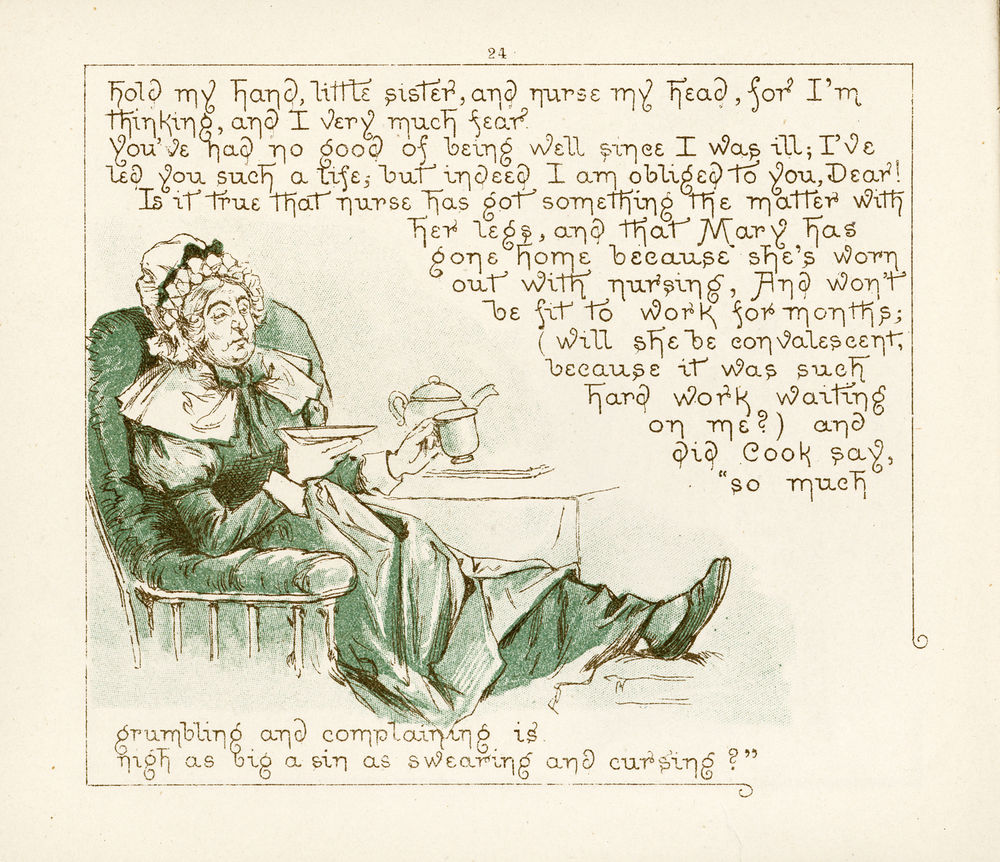 24
hold my hand, little sister, and nurse my head, for I'm
thinking, and I very much fear
You've had no good of being well since I was ill; I've
led you such a life; but indeed I am obliged to you, Dear!
Is it true that nurse has got something the matter with
her legs, and that Mary has
gone home because she's worn
out with nursing, And won't
be fit to work for months;
(will she be convalescent,
because it was such
hard work waiting
on me?) and
did Cook say,
"so much
grumbling and complaining is
nigh as big a sin as swearing and cursing?"